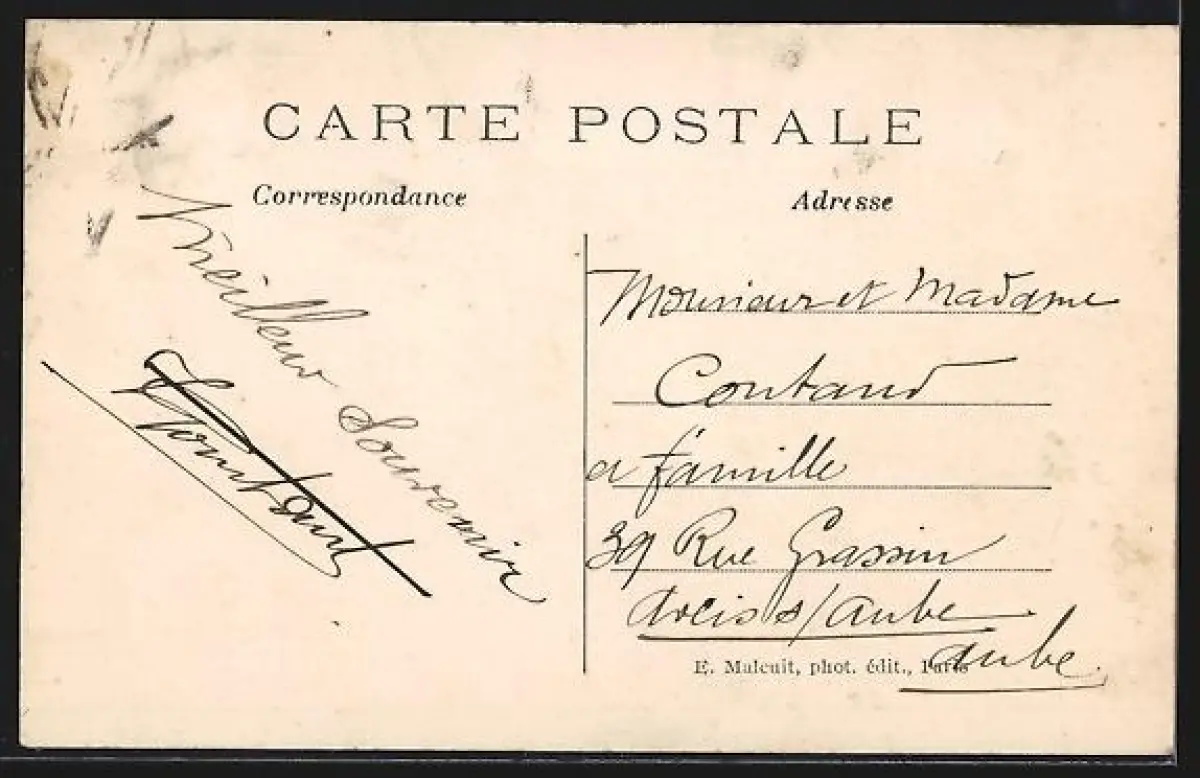 CARTE POSTALE
Correspondance
Adresse
Meilleur Souvenir
Monsieur et Madame
Coutand
a famille
39 Rue Grassin
Arcis s/ Aube
Aube
E. Malcuit, phot. édit., Paris